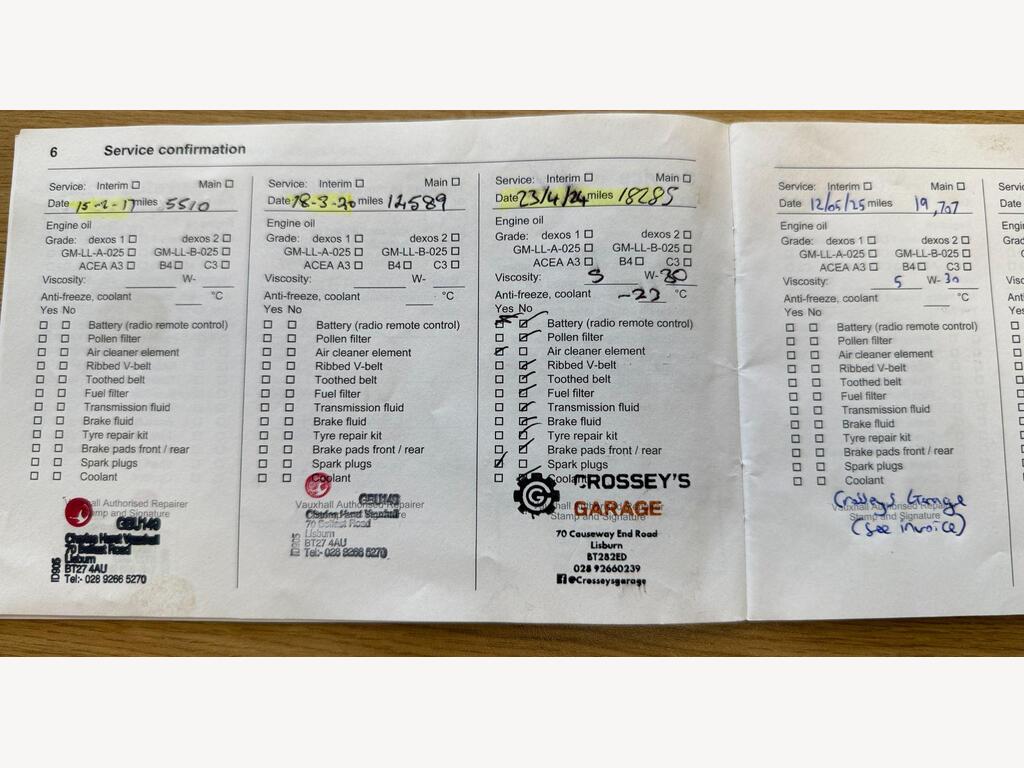 6 Service confirmation
Service: Interim Main
Date 15-2-17 miles 5510
Engine oil
Grade: dexos 1 dexos 2
GM-LL-A-025 GM-LL-B-025
ACEA A3 B4 C3
Viscosity: W-
Anti-freeze, coolant °C
Yes No
Battery (radio remote control)
Pollen filter
Air cleaner element
Ribbed V-belt
Toothed belt
Fuel filter
Transmission fluid
Brake fluid
Tyre repair kit
Brake pads front / rear
Spark plugs
Coolant
Authorised Repairer
Stamp and Signature
GBU140
Charles Hurst Vauxhall
70 Belfast Road
Lisburn
BT27 4AU
Tel:- 028 9266 5270
Service: Interim Main
Date 18-3-20 miles 12589
Engine oil
Grade: dexos 1 dexos 2
GM-LL-A-025 GM-LL-B-025
ACEA A3 B4 C3
Viscosity: W-
Anti-freeze, coolant °C
Yes No
Battery (radio remote control)
Pollen filter
Air cleaner element
Ribbed V-belt
Toothed belt
Fuel filter
Transmission fluid
Brake fluid
Tyre repair kit
Brake pads front / rear
Spark plugs
Coolant
GBU140
Vauxhall Authorised Repairer
Charles Hurst Vauxhall
70 Belfast Road
Lisburn
BT27 4AU
Tel:- 028 9266 5270
Service: Interim Main
Date 23/4/24 miles 18285
Engine oil
Grade: dexos 1 dexos 2
GM-LL-A-025 GM-LL-B-025
ACEA A3 B4 C3
Viscosity: 5 W-30
Anti-freeze, coolant -23 °C
Yes No
Battery (radio remote control)
Pollen filter
Air cleaner element
Ribbed V-belt
Toothed belt
Fuel filter
Transmission fluid
Brake fluid
Tyre repair kit
Brake pads front / rear
Spark plugs
Coolant
CROSSEY'S
GARAGE
Stamp and Signature
70 Causeway End Road
Lisburn
BT282ED
028 92660239
@Crosseysgarage
Service: Interim Main
Date 12/05/25 miles 19,707
Engine oil
Grade: dexos 1 dexos 2
GM-LL-A-025 GM-LL-B-025
ACEA A3 B4 C3
Viscosity: 5 W-30
Anti-freeze, coolant °C
Yes No
Battery (radio remote control)
Pollen filter
Air cleaner element
Ribbed V-belt
Toothed belt
Fuel filter
Transmission fluid
Brake fluid
Tyre repair kit
Brake pads front / rear
Spark plugs
Coolant
Crosseys Garage
Vauxhall Authorised Repairer
Stamp and Signature
(See invoice)
Servic
Date
Engin
Grad
Visc
Anti
Yes